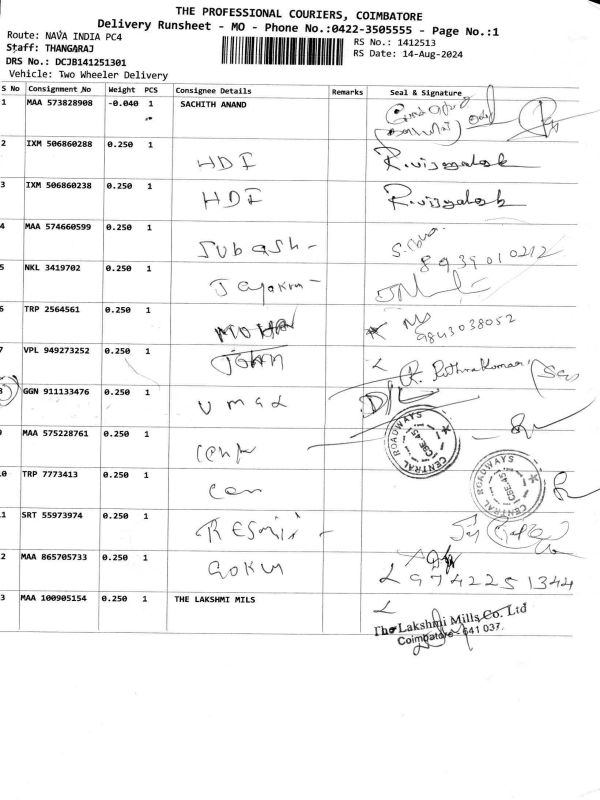 THE PROFESSIONAL COURIERS, COIMBATORE
Delivery Runsheet - MO - Phone No.:0422-3505555 - Page No.:1
Route: NAVA INDIA PC4
RS No.: 1412513
Staff: THANGARAJ
RS Date: 14-Aug-2024
DRS No.: DCJB141251301
Vehicle: Two Wheeler Delivery
S No Consignment No Weight PCS Consignee Details Remarks Seal & Signature
1 MAA 573828908 -0.040 1 SACHITH ANAND
2 IXM 506860288 0.250 1 HDF R.vijayalak
3 IXM 506860238 0.250 1 HDF R.vijayalak
4 MAA 574660599 0.250 1 Subash 8939010212
5 NKL 3419702 0.250 1 Jayakum
6 TRP 2564561 0.250 1 MOHAN 9843038052
7 VPL 949273252 0.250 1 John R. Rathnakumar
8 GGN 911133476 0.250 1 Umad
9 MAA 575228761 0.250 1 CENTRAL ROADWAYS CBE-45
10 TRP 7773413 0.250 1 Cen CENTRAL ROADWAYS CBE-45
11 SRT 55973974 0.250 1
12 MAA 865705733 0.250 1 GOKUL 9742251344
13 MAA 100905154 0.250 1 THE LAKSHMI MILS
The Lakshmi Mills Co. Ltd
Coimbatore - 641 037.